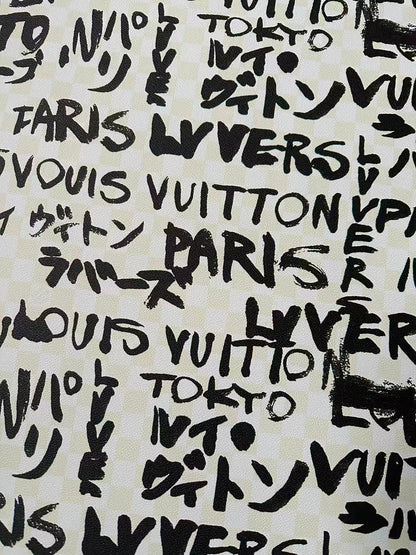 TO パリ LVVERS TOKYO VUITTON
ルイ・
ヴィトン VUI
PARIS LVVERS
LOUIS VUITTON LVVERS
ヴィトン PARIS
ラバーズ
LOUIS VUITTON LVVER
パリ LVVERS TOKYO
ルイ・
ヴィトン VUITT
ARIS LVVERS